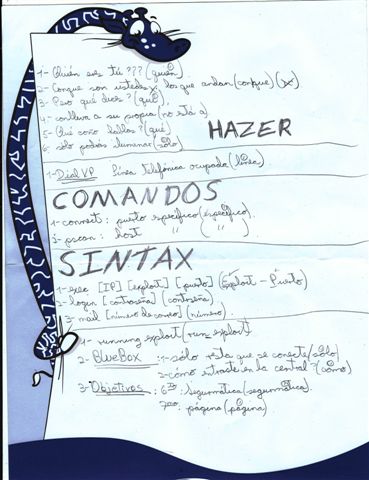 1- Quién eres tú ??? (quién).
2- Conque son ustedes los que andan (conque) (x)
3- Pero qué dices? (qué).
4- conlleva a su propia (no está a)
5- Qué coño hablas? (qué)
6- solo podrás iluminar (sólo)
HAZER
1- Dial VP línea telefónica ocupada (línea)
COMANDOS
1- connect: puerto específico (específico)
3- pscan: host " ( " )
SINTAX
1- exec [IP] [exploit] [puerto] (Exploit - Puerto)
2- login [contraseña] (contraseña)
3- mail [número de correo] (número)
1- running exploit (run exploit)
2- BlueBox : 1- sólo resta que se conecte (sólo)
2- cómo entraste en la central? (cómo)
3- Objetivos : 6to: Segurmática (segurmática).
7mo: página (página)